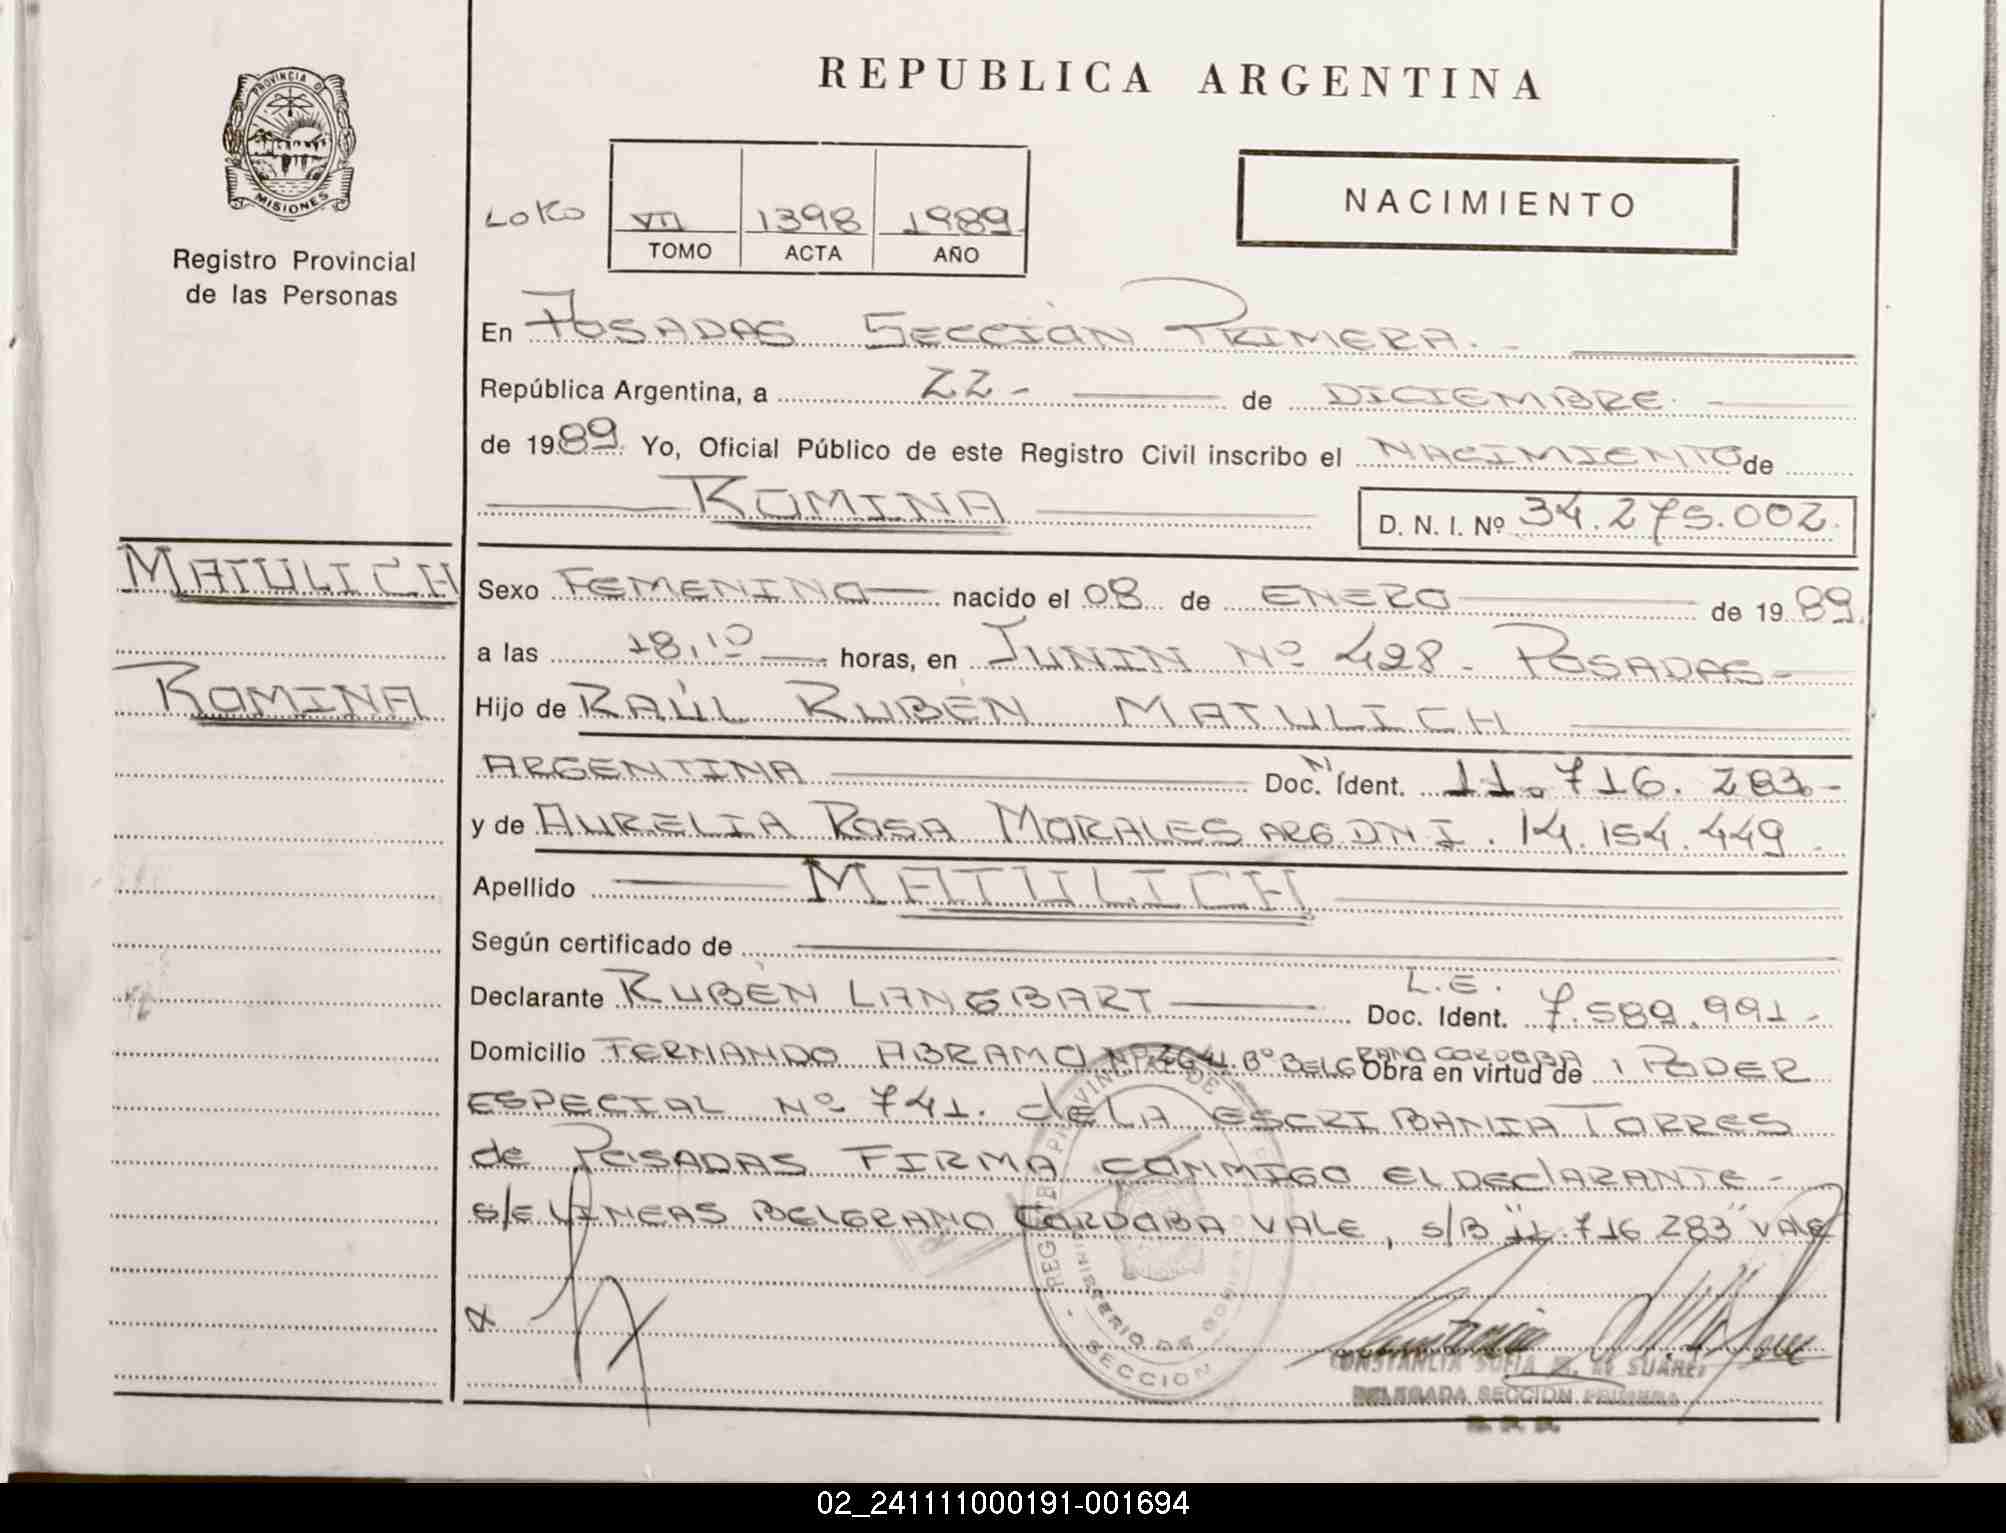 REPUBLICA ARGENTINA
PROVINCIA D
MISIONES
Registro Provincial
de las Personas
NACIMIENTO
VII 1398 1989
TOMO ACTA AÑO
En POSADAS SECCIÓN PRIMERA.-
República Argentina, a 22- de DICIEMBRE.
de 1989. Yo, Oficial Público de este Registro Civil inscribo el NACIMIENTO de
ROMINA D. N. I. Nº 34.275.002.
MATULICH
ROMINA
Sexo FEMENINO nacido el 08 de ENERO de 1989.
a las 18,10 horas, en JUNIN Nº 428- POSADAS-
Hijo de RAÚL RUBÉN MATULICH
ARGENTINA Doc. Ident. 11.716.283.-
y de AURELIA ROSA MORALES ARG.DNI. 14.154.449.
Apellido MATULICH
Según certificado de
Declarante RUBÉN LANGBART L.E. Doc. Ident. 7.589.991-
Domicilio FERNANDO ABRAMO Nº 2641. Bº BELGRANO CORDOBA Obra en virtud de PODER
ESPECIAL Nº 741. de LA ESCRIBANIA TORRES
de POSADAS FIRMA CONMIGO EL DECLARANTE-
S/E LINEAS BELGRANO CORDOBA VALE, S/B "11.716 283" VALE
REGISTRO PROVINCIAL DE
MINISTERIO DE GOBIERNO
SECCION
CONSTANCIA SOFIA M. DE SUAREZ
DELEGADA SECCION PRIMERA
02_241111000191-001694